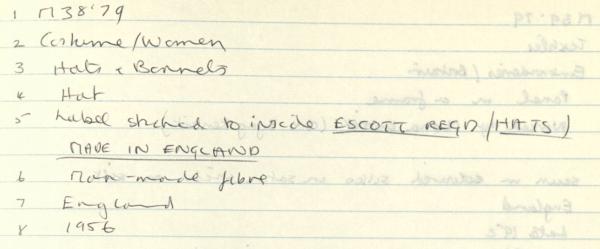 1 M38'79
2 Costume/Women
3 Hats & Bonnets
4 Hat
5 Label stitched to inside ESCOTT REGD/HATS/
MADE IN ENGLAND
6 Man-made fibre
7 England
8 1956